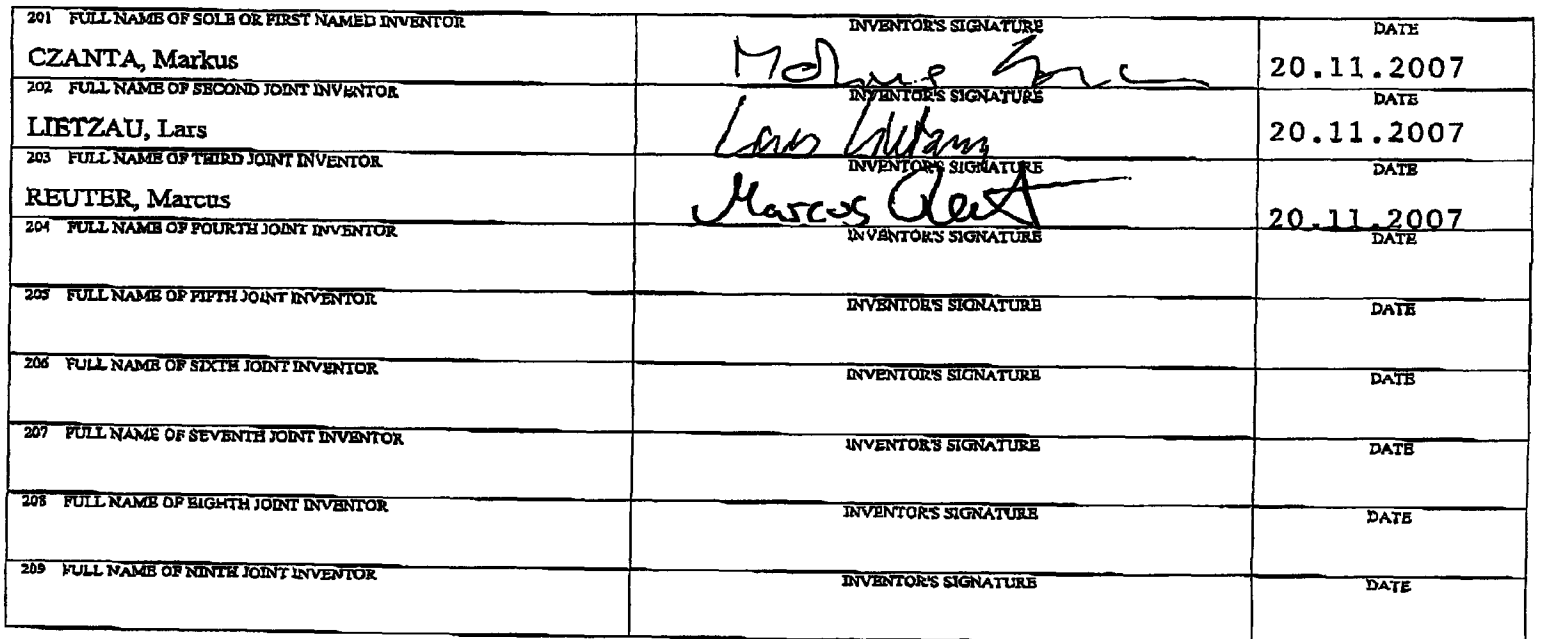 201 FULL NAME OF SOLE OR FIRST NAMED INVENTOR INVENTOR'S SIGNATURE DATE
CZANTA, Markus 20.11.2007
202 FULL NAME OF SECOND JOINT INVENTOR INVENTOR'S SIGNATURE DATE
LIETZAU, Lars Lars Lietzau 20.11.2007
203 FULL NAME OF THIRD JOINT INVENTOR INVENTOR'S SIGNATURE DATE
REUTER, Marcus Marcus Reut 20.11.2007
204 FULL NAME OF FOURTH JOINT INVENTOR INVENTOR'S SIGNATURE DATE
205 FULL NAME OF FIFTH JOINT INVENTOR INVENTOR'S SIGNATURE DATE
206 FULL NAME OF SIXTH JOINT INVENTOR INVENTOR'S SIGNATURE DATE
207 FULL NAME OF SEVENTH JOINT INVENTOR INVENTOR'S SIGNATURE DATE
208 FULL NAME OF EIGHTH JOINT INVENTOR INVENTOR'S SIGNATURE DATE
209 FULL NAME OF NINTH JOINT INVENTOR INVENTOR'S SIGNATURE DATE